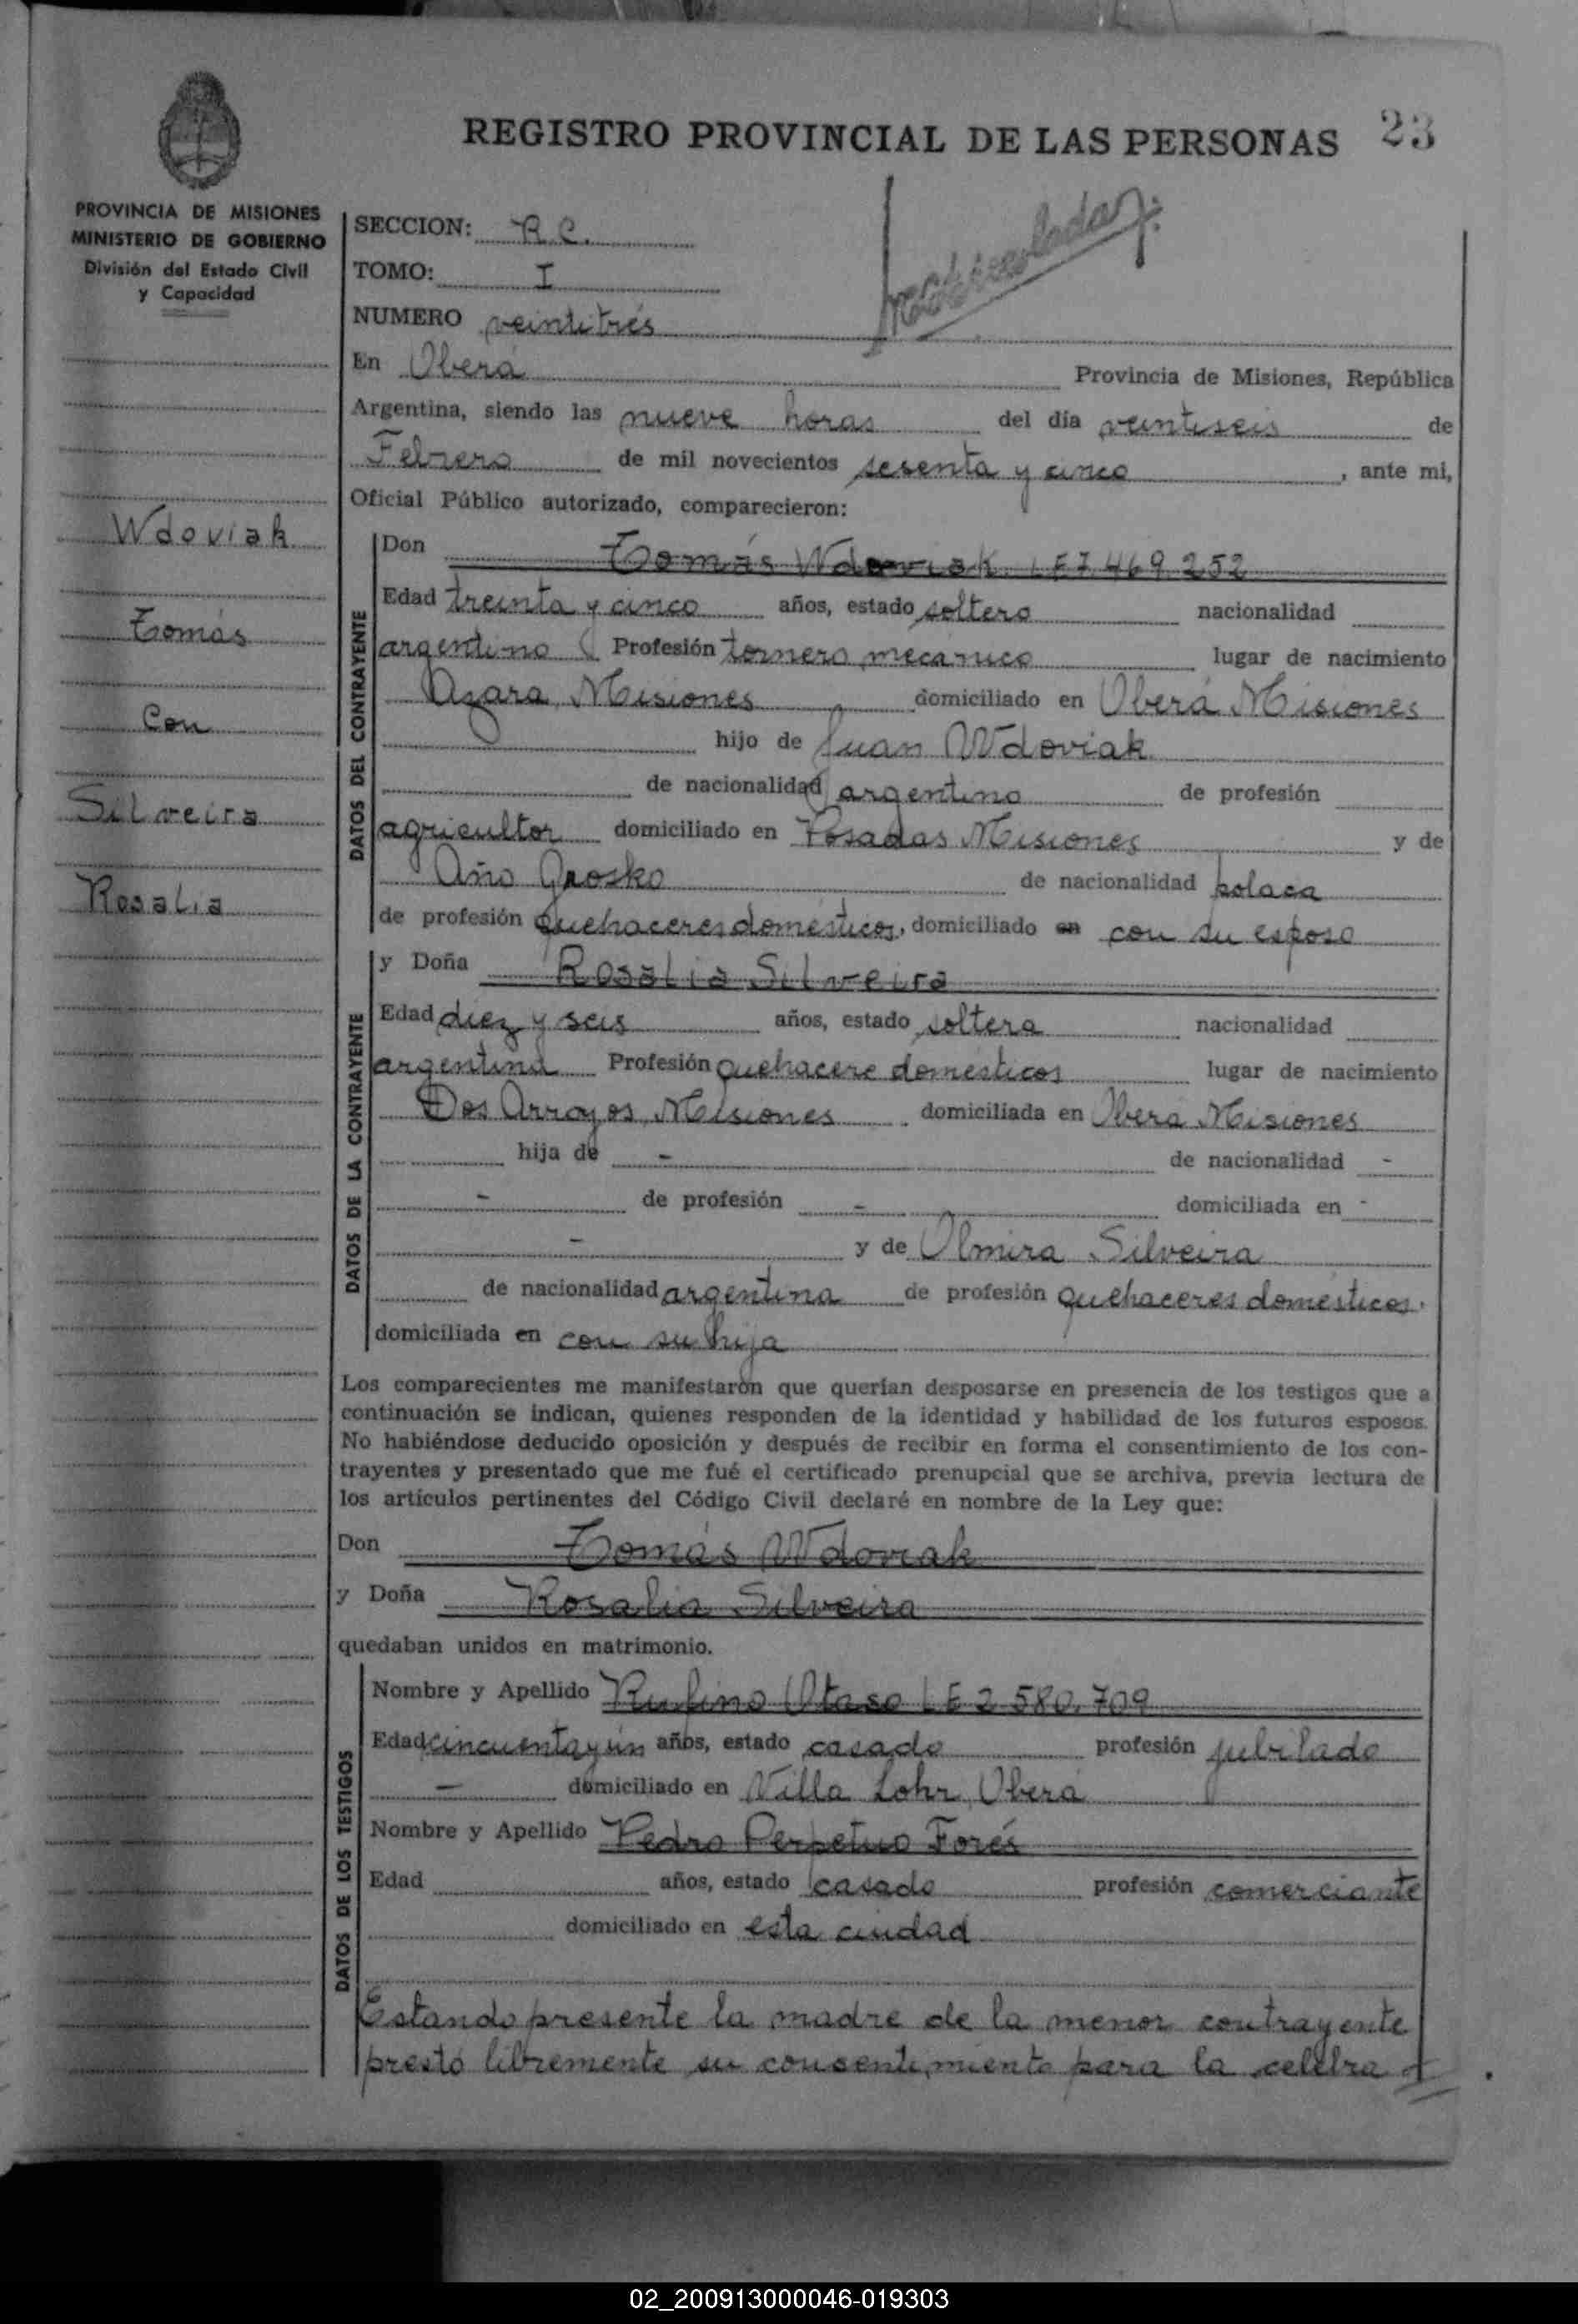 REGISTRO PROVINCIAL DE LAS PERSONAS 23
PROVINCIA DE MISIONES
MINISTERIO DE GOBIERNO
División del Estado Civil
y Capacidad
Wdoviak
Tomás
Con
Silveira
Rosalia
SECCION: R.C.
TOMO: I
NUMERO veintitrés
En Oberá Provincia de Misiones, República
Argentina, siendo las nueve horas del día veintiseis de
Febrero de mil novecientos sesenta y cinco, ante mi,
Oficial Público autorizado, comparecieron:
DATOS DEL CONTRAYENTE
Don Tomás Wdoviak LE 7.469.252
Edad treinta y cinco años, estado soltero nacionalidad
argentino Profesión tornero mecanico lugar de nacimiento
Azara, Misiones domiciliado en Oberá Misiones
hijo de Juan Wdoviak
de nacionalidad argentino de profesión
agricultor domiciliado en Posadas Misiones y de
Grosko de nacionalidad polaca
de profesión quehaceres domésticos, domiciliado en con su esposo
DATOS DE LA CONTRAYENTE
y Doña Rosalia Silveira
Edad diez y seis años, estado soltera nacionalidad
argentina Profesión quehacere domésticos lugar de nacimiento
Dos Arroyos, Misiones domiciliada en Oberá Misiones
hija de - de nacionalidad -
- de profesión - domiciliada en -
- y de Olmira Silveira
de nacionalidad argentina de profesión quehaceres domésticos.
domiciliada en con su hija
Los comparecientes me manifestaron que querían desposarse en presencia de los testigos que a
continuación se indican, quienes responden de la identidad y habilidad de los futuros esposos.
No habiéndose deducido oposición y después de recibir en forma el consentimiento de los con-
trayentes y presentado que me fué el certificado prenupcial que se archiva, previa lectura de
los artículos pertinentes del Código Civil declaré en nombre de la Ley que:
Don Tomás Wdoviak
y Doña Rosalia Silveira
quedaban unidos en matrimonio.
DATOS DE LOS TESTIGOS
Nombre y Apellido Rufino Otaso LE 2.580.709
Edad cincuenta y un años, estado casado profesión jubilado
- domiciliado en Villa Lohr, Oberá
Nombre y Apellido Pedro Perpetuo Forés
Edad años, estado casado profesión comerciante
domiciliado en esta ciudad
Estando presente la madre de la menor contrayente
prestó libremente su consentimiento para la celebra
02_200913000046-019303